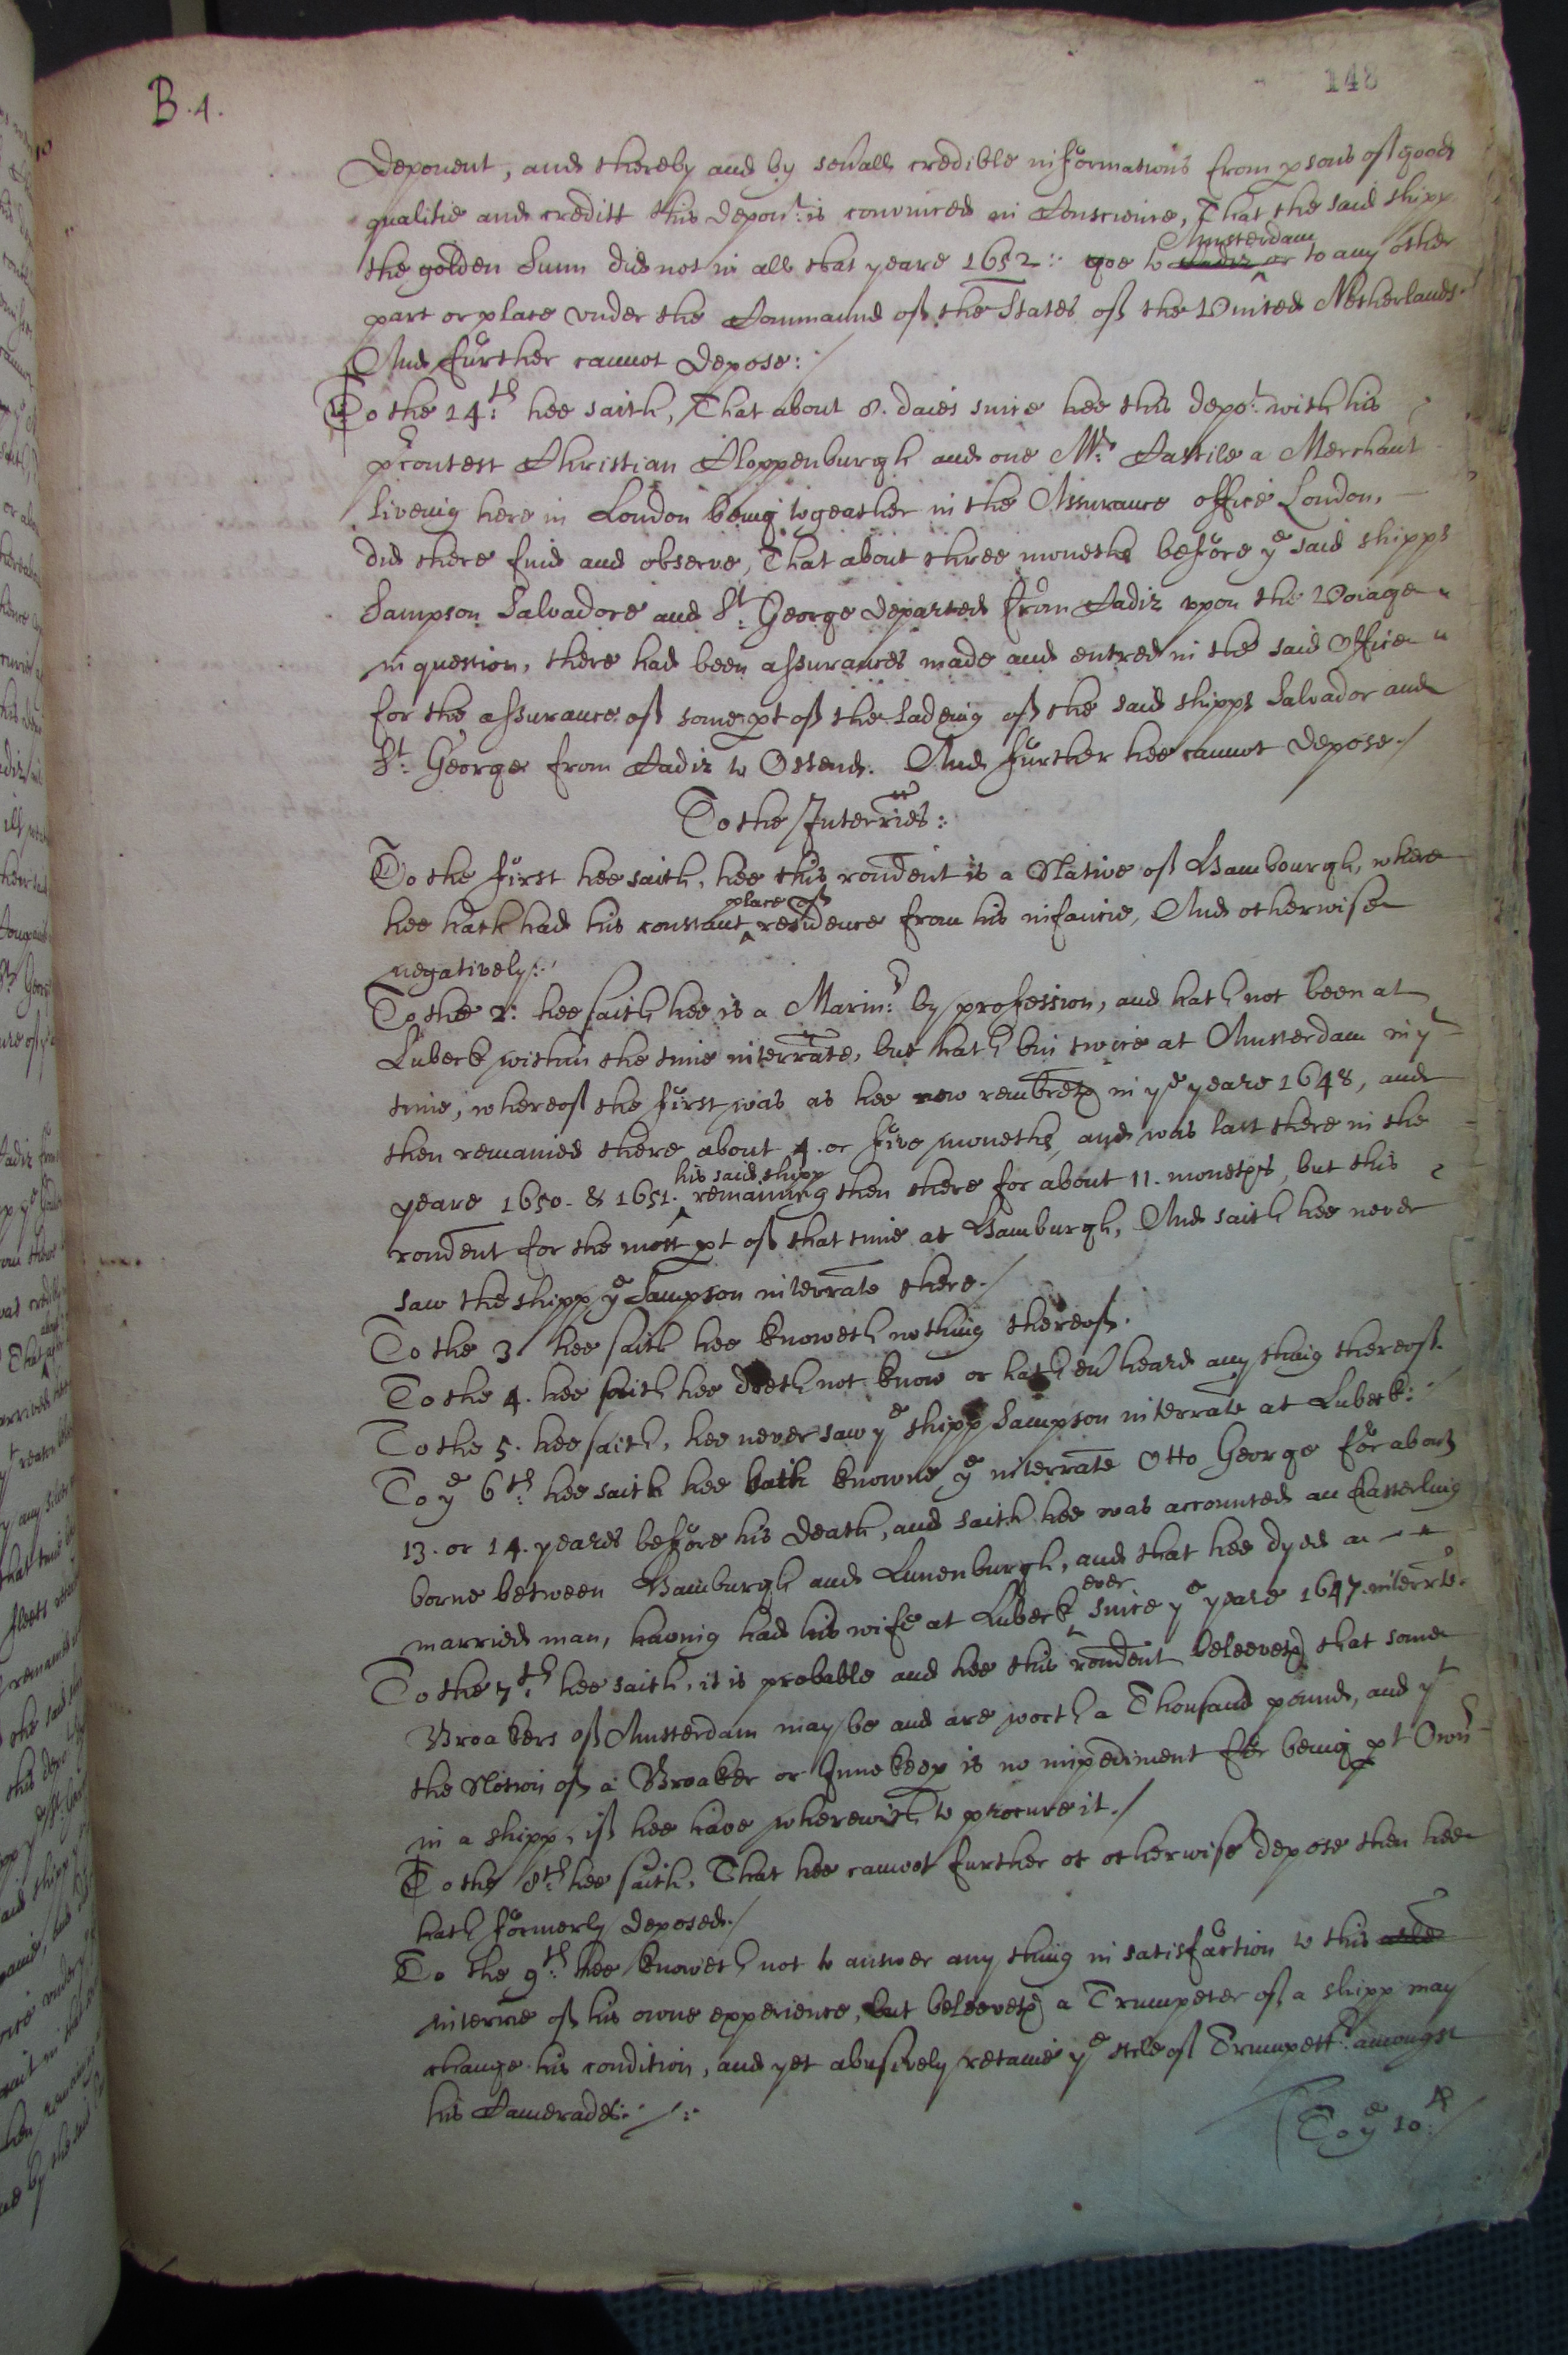 B.4.
148
Deponent, and thereby and by seuall credible informations from psons of good
qualitie and creditt this depont: is convinced in Conscience, That the said shipp
the golden Sunn did not in all that yeare 1652: goe to Amsterdam or to any other
part or place vnder the Command of the States of the Vnited Netherlands.
And further cannot depose:/
To the 14:th hee saith, That about 8. daies since hee this depot: with his
precontest Christian Cloppenburgh and one Mr: Castile a Merchant
liveing here in London being togeather in the Assurance office London,
did there find and observe, That about three moneths before ye said shipps
Sampson Salvadore and St: George departed from Cadiz vpon the Voiage
in question, there had been assurances made and entred in the said Office
for the assurance of some pt of the ladeing of the said shipps Salvador and
St: George from Cadiz to Ostend. And further hee cannot depose./
To the Interries:
To the first hee saith, hee this rondent is a Native of Hambourgh, where
hee hath had his constant place of residence from his infancie, And otherwise
negatively:
To the 2: hee saith hee is a Marinr: by profession, and hath not been at
Lubeck within the time interrate, but hath bin twice at Amsterdam in yt
time, whereof the first was as hee now rembreth in ye yeare 1648, and
then remained there about 4. or five moneths, and was last there in the
yeare 1650. & 1651. his said shipp remaining then there for about 11. moneths, but this
rondent for the most pt of that time at Hamburgh, And saith hee never
saw the shipp ye Sampson interrate there./
To the 3 hee saith hee knoweth nothing thereof.
To the 4. hee saith hee doeth not know or hath eu heard any thing thereof.
To the 5. hee saith, hee never saw ye shipp Sampson interrate at Lubeck:
To ye 6th: hee saith hee hath knowne ye interrate Otto George for about
13. or 14. yeares before his death, and saith hee was accounted an Easterling
borne between Hamburgh and Lunenburgh, and that hee dyed a
married man, haveing had his wife at Lubeck ever since ye yeare 1647. interrte.
To the 7th: hee saith, it is probable and hee this rondent beleeveth that some
Broakers of Amsterdam may be and are worth a Thousand pound, and yt
the Notion of a Broaker or Innekeepr is no impediment for being pt Ownr
in a shipp, if hee have wherewith to procure it./
To the 8th: hee saith, That hee cannot further or otherwise depose then hee
hath formerly deposed./
To the 9th: hee knoweth not to answer any thing in satisfaction to this
interrie of his owne experience, but beleeveth a Trumpeter of a shipp may
change his condition, and yet abusively retaine ye stile of Trumpettr: amongst
his Camerades:/:
To ye 10:th/